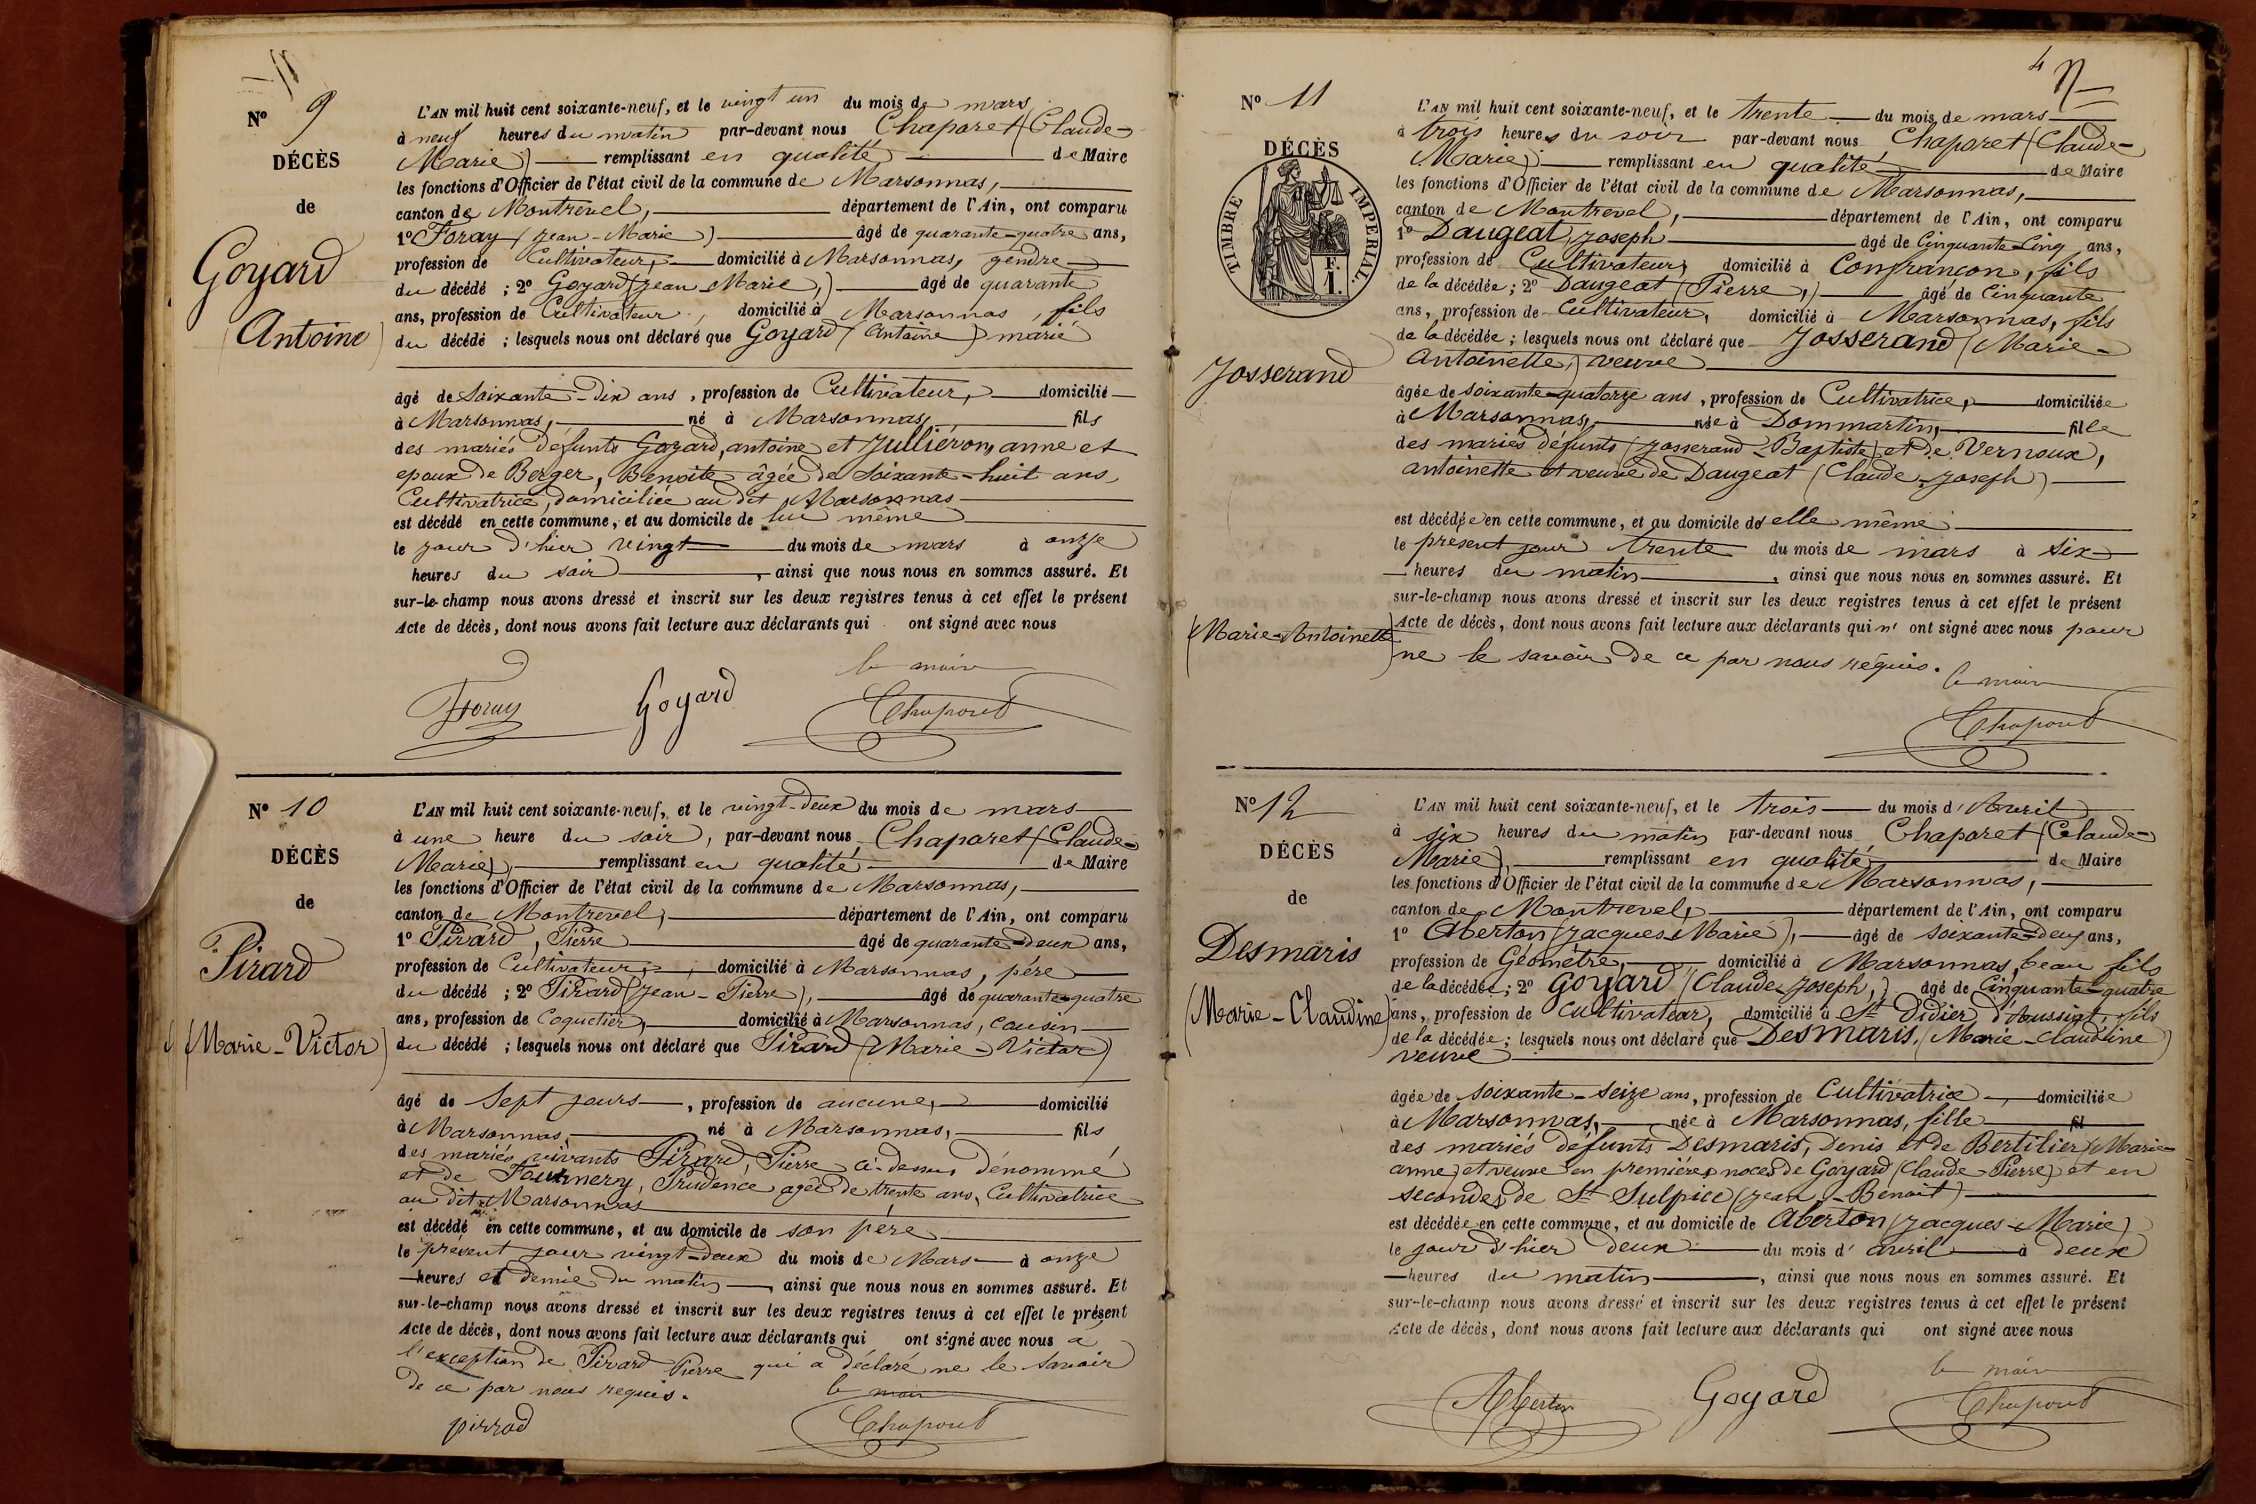 N° 9
DÉCÈS
de
Goyard
(Antoine)
L'AN mil huit cent soixante-neuf, et le vingt un du mois de mars
à neuf heures du matin par-devant nous Chaparet (Claude-
Marie) remplissant en qualité de Maire
les fonctions d'Officier de l'état civil de la commune de Marsonnas,
canton de Montrevel, département de l'Ain, ont comparu
1° Foray (jean-Marie) âgé de quarante-quatre ans,
profession de Cultivateur, domicilié à Marsonnas, gendre
du décédé ; 2° Goyard (jean Marie,) âgé de quarante
ans, profession de Cultivateur, domicilié à Marsonnas, fils
du décédé ; lesquels nous ont déclaré que Goyard (Antoine) marié
âgé de Soixante-Dix ans, profession de Cultivateur, domicilié
à Marsonnas, né à Marsonnas, fils
des mariés défunts Goyard, antoine et Julliéron, anne et
epoux de Berger, Benoite âgée de Soixante-huit ans,
Cultivatrice, domiciliée au dit Marsonnas
est décédé en cette commune, et au domicile de lui même
le jour d'hier vingt du mois de mars à onze
heures du soir, ainsi que nous nous en sommes assuré. Et
sur-le-champ nous avons dressé et inscrit sur les deux registres tenus à cet effet le présent
Acte de décès, dont nous avons fait lecture aux déclarants qui ont signé avec nous
le maire
Foray Goyard Chaparet
N° 10
DÉCÈS
de
Pirard
(Marie-Victor)
L'AN mil huit cent soixante-neuf, et le vingt-deux du mois de mars
à une heure du soir, par-devant nous Chaparet (Claude-
Marie), remplissant en qualité de Maire
les fonctions d'Officier de l'état civil de la commune de Marsonnas,
canton de Montrevel, département de l'Ain, ont comparu
1° Pirard, Pierre âgé de quarante-deux ans,
profession de Cultivateur, domicilié à Marsonnas, père
du décédé ; 2° Pirard (jean-Pierre), âgé de quarante-quatre
ans, profession de Coquetier, domicilié à Marsonnas, cousin
du décédé ; lesquels nous ont déclaré que Pirard (Marie-Victor)
âgé de Sept jours, profession de aucune, domicilié
à Marsonnas, né à Marsonnas, fils
des mariés vivants Pirard, Pierre ci-dessus dénommé
et de Prudence agée de trente ans, Cultivatrice
au dit Marsonnas
est décédé en cette commune, et au domicile de son père
le présent jour vingt-deux du mois de Mars à onze
heures et demie du matin, ainsi que nous nous en sommes assuré. Et
sur-le-champ nous avons dressé et inscrit sur les deux registres tenus à cet effet le présent
Acte de décès, dont nous avons fait lecture aux déclarants qui ont signé avec nous à
l'exception de Pirard Pierre qui a déclaré ne le savoir
de ce par nous requis.
le maire
pirrad Chaparet
4
N° 11
DÉCÈS
TIMBRE IMPERIAL.
F.
1.
Josserand
(Marie-Antoinette)
L'AN mil huit cent soixante-neuf, et le trente du mois de mars
à trois heures du soir par-devant nous Chaparet (Claude-
Marie) remplissant en qualité de Maire
les fonctions d'Officier de l'état civil de la commune de Marsonnas,
canton de Montrevel, département de l'Ain, ont comparu
1° Daugeat, joseph âgé de Cinquante Cinq ans,
profession de Cultivateur, domicilié à Confrançon, fils
de la décédée ; 2° Daugeat (Pierre,) âgé de Cinquante
ans, profession de Cultivateur, domicilié à Marsonnas, fils
de la décédée ; lesquels nous ont déclaré que Josserand (Marie-
Antoinette,) veuve
âgée de soixante-quatorze ans, profession de Cultivatrice, domiciliée
à Marsonnas, née à Dommartin, fille
des mariés défunts (josserand-Baptiste) et de Vernoux,
antoinette et veuve de Daugeat (Claude-joseph)
est décédée en cette commune, et au domicile de elle même
le présent jour trente du mois de mars à six
heures du matin, ainsi que nous nous en sommes assuré. Et
sur-le-champ nous avons dressé et inscrit sur les deux registres tenus à cet effet le présent
Acte de décès, dont nous avons fait lecture aux déclarants qui n' ont signé avec nous pour
ne le savoir de ce par nous requis.
le maire
Chaparet
N° 12
DÉCÈS
de
Desmaris
(Marie-Claudine)
L'AN mil huit cent soixante-neuf, et le trois du mois d'Avril
à six heures du matin par-devant nous Chaparet (Claude-
Marie), remplissant en qualité de Maire
les fonctions d'Officier de l'état civil de la commune de Marsonnas,
canton de Montrevel, département de l'Ain, ont comparu
1° Aberton (jacques-Marie), âgé de soixante-deux ans,
profession de Géomètre, domicilié à Marsonnas, beau fils
de la décédée ; 2° Goyard (Claude-joseph,) âgé de Cinquante-quatre
ans, profession de Cultivateur, domicilié à St Didier d'Aussiat, fils
de la décédée ; lesquels nous ont déclaré que Desmaris, (Marie-claudine)
veuve
âgée de soixante-seize ans, profession de Cultivatrice, domiciliée
à Marsonnas, née à Marsonnas, fille fil
des mariés défunts Desmaris, Denis et de Bertilier (Marie-
anne) et veuve en premières noces de Goyard (Claude-Pierre) et en
secondes de St Sulpice (jean-Benoit)
est décédée en cette commune, et au domicile de Aberton (jacques-Marie)
le jour d'hier deux du mois d'avril à deux
heures du matin, ainsi que nous nous en sommes assuré. Et
sur-le-champ nous avons dressé et inscrit sur les deux registres tenus à cet effet le présent
Acte de décès, dont nous avons fait lecture aux déclarants qui ont signé avec nous
le maire
Aberton Goyard Chaparet